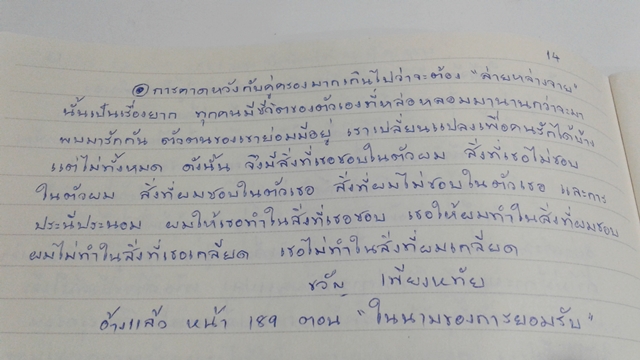 14
การคาดหวังกับคู่ครองมากเกินไปว่าจะต้อง "ส่ายหล่างฉาย"
นั้นเป็นเรื่องยาก ทุกคนมีชีวิตของตัวเองที่หล่อหลอมมานานกว่าจะมา
พบมารักกัน ตัวตนของเขาย่อมมีอยู่ เราเปลี่ยนแปลงเพื่อคนรักได้บ้าง
แต่ไม่ทั้งหมด ดังนั้น จึงมีสิ่งที่เธอชอบในตัวผม สิ่งที่เธอไม่ชอบ
ในตัวผม สิ่งที่ผมชอบในตัวเธอ สิ่งที่ผมไม่ชอบในตัวเธอ และการ
ประนีประนอม ผมให้เธอทำในสิ่งที่เธอชอบ เธอให้ผมทำในสิ่งที่ผมชอบ
ผมไม่ทำในสิ่งที่เธอเกลียด เธอไม่ทำในสิ่งที่ผมเกลียด
ขวัญ เพียงหทัย
อ้างแล้ว หน้า 189 ตอน "ในนามของการยอมรับ"